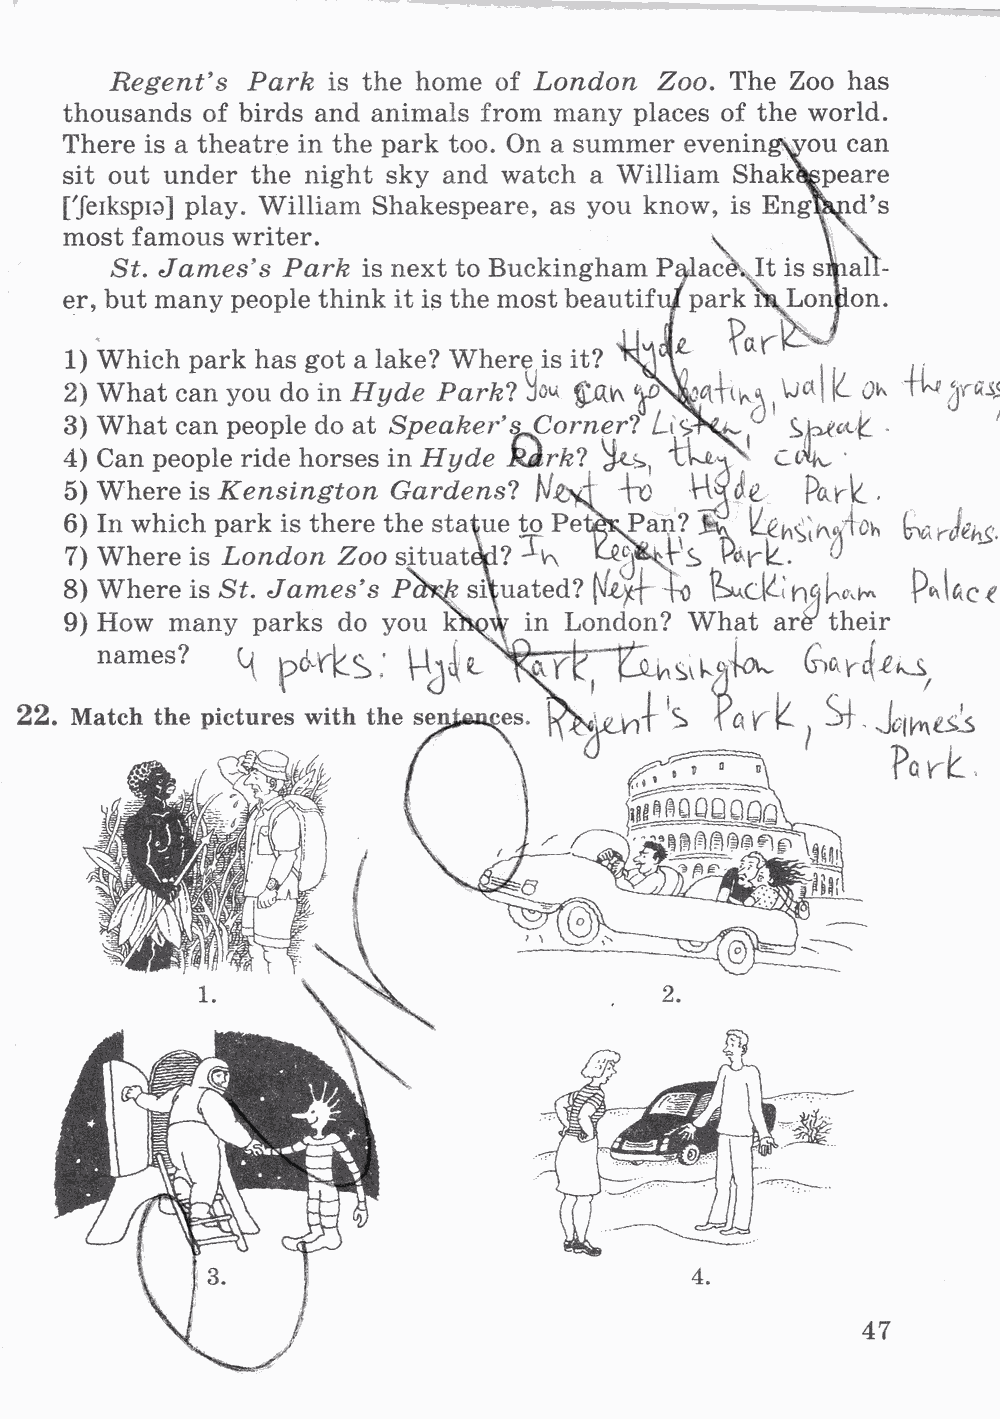 Regent's Park is the home of London Zoo. The Zoo has
thousands of birds and animals from many places of the world.
There is a theatre in the park too. On a summer evening you can
sit out under the night sky and watch a William Shakespeare
[ˈʃeıkspıə] play. William Shakespeare, as you know, is England's
most famous writer.
St. James's Park is next to Buckingham Palace. It is small-
er, but many people think it is the most beautiful park in London.
1) Which park has got a lake? Where is it? Hyde Park
2) What can you do in Hyde Park? You can go boating, walk on the grass
3) What can people do at Speaker's Corner? Listen, speak.
4) Can people ride horses in Hyde Park? Yes, they can.
5) Where is Kensington Gardens? Next to Hyde Park.
6) In which park is there the statue to Peter Pan? In Kensington Gardens.
7) Where is London Zoo situated? In Regent's Park.
8) Where is St. James's Park situated? Next to Buckingham Palace
9) How many parks do you know in London? What are their
names? 4 parks: Hyde Park, Kensington Gardens,
Regent's Park, St. James's
Park.
22. Match the pictures with the sentences.
1.
2.
3.
4.
47